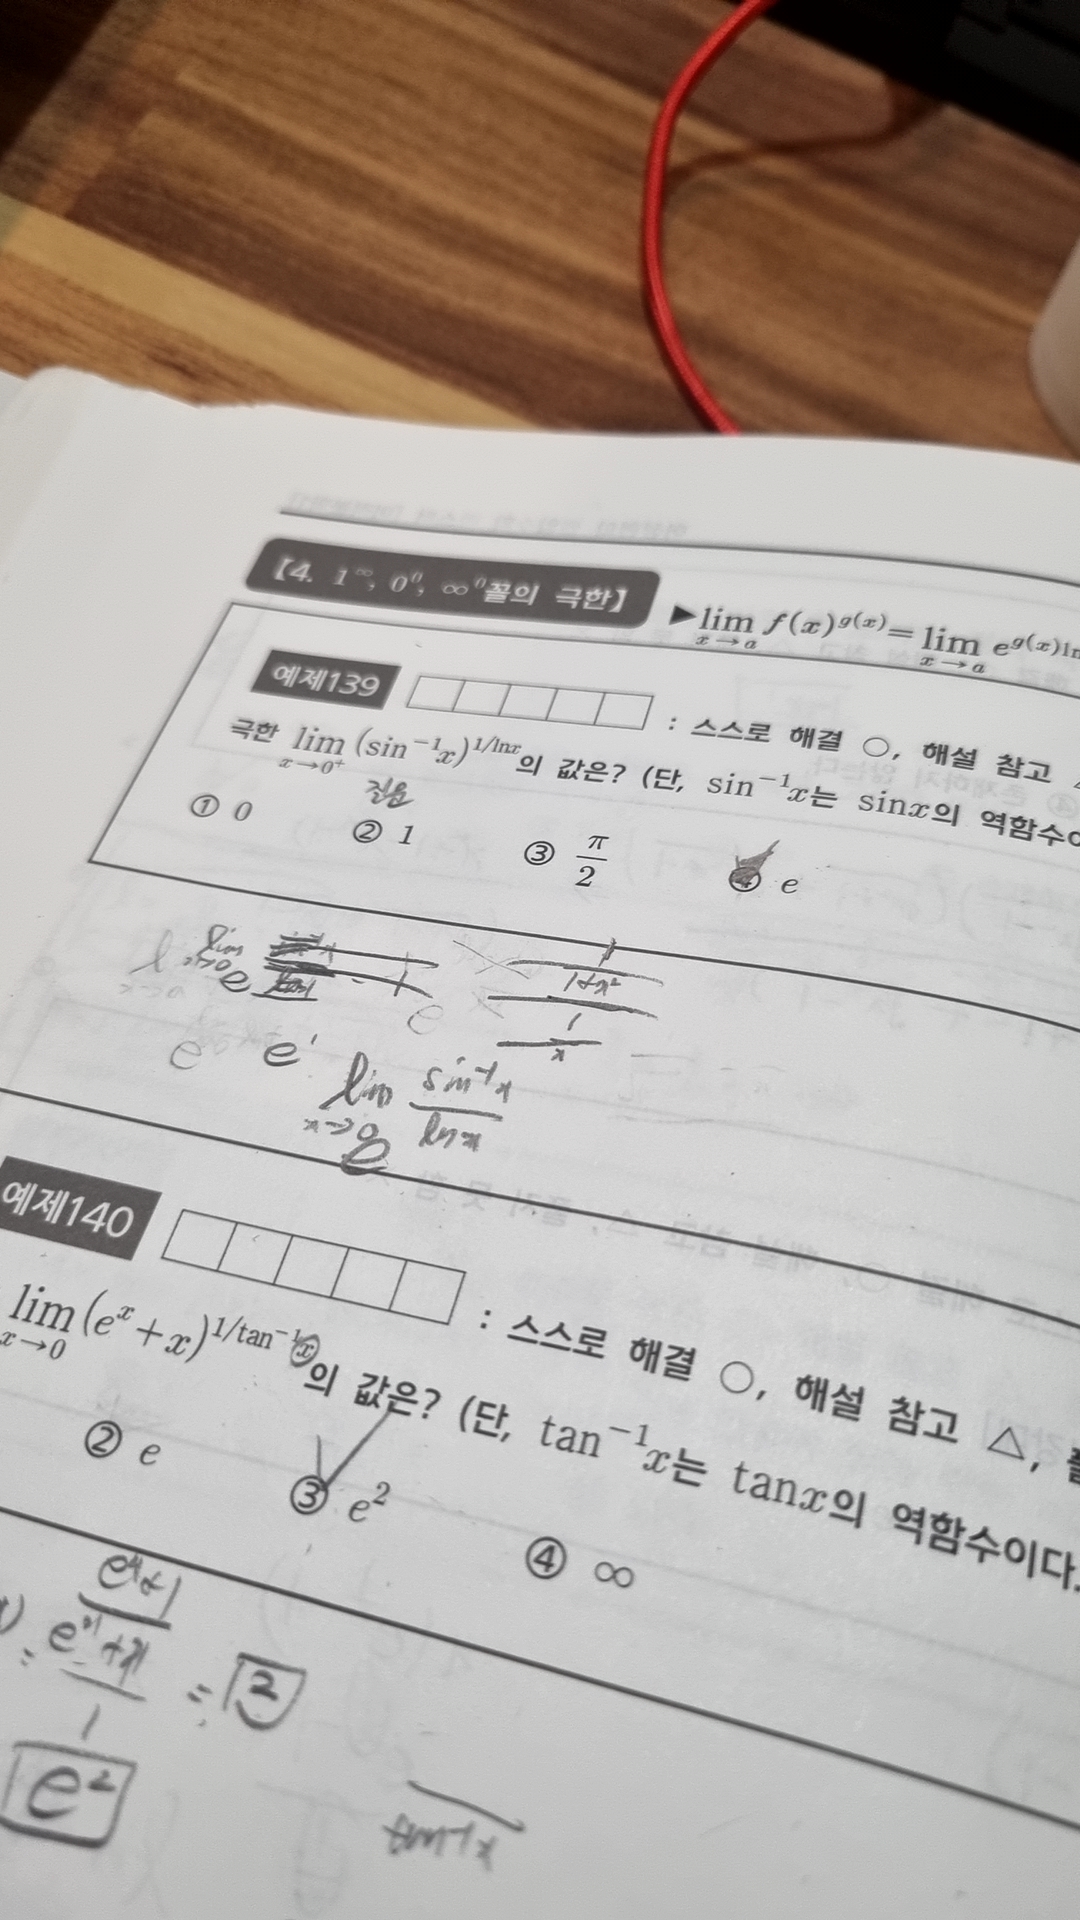 【4. 1^∞, 0^0, ∞^0 꼴의 극한】 ▶ lim x→a f(x)^g(x) = lim x→a e^g(x)ln
예제139 : 스스로 해결 ○, 해설 참고
극한 lim x→0+ (sin⁻¹x)^1/lnx 의 값은? (단, sin⁻¹x는 sinx의 역함수이
질문
① 0 ② 1 ③ π/2 ④ e
lim
e
1/(1+x²)
1/x
e e¹ lim x→0 sin⁻¹x / lnx
예제140 : 스스로 해결 ○, 해설 참고 △,
lim x→0 (e^x+x)^1/tan⁻¹x 의 값은? (단, tan⁻¹x는 tanx의 역함수이다.
② e ③ e² ④ ∞
e^x+1
e^x+x
1
= 2
e²
tan⁻¹x